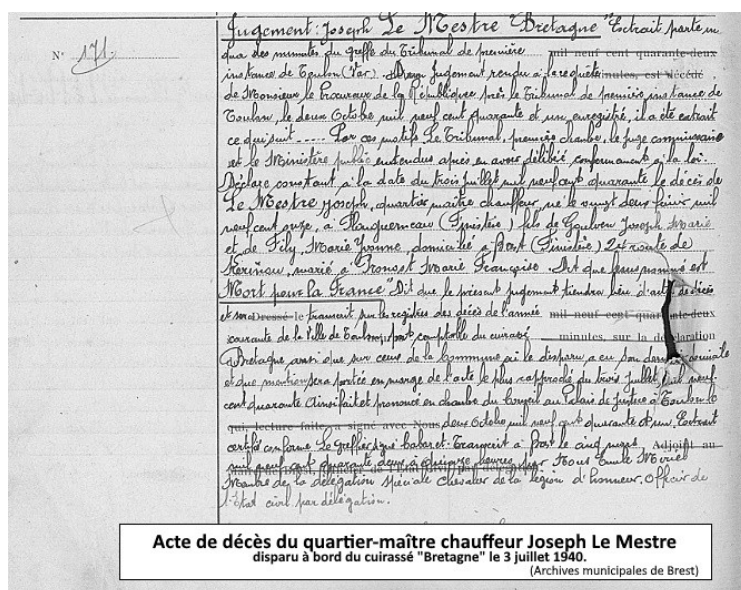 Jugement: Joseph Le Mestre "Bretagne" Extrait parte in
N° 171
qua des minutes du greffe du Tribunal de première mil neuf cent quarante-deux
instance de Toulon (Var). D'un Jugement rendu à la requête minutes, est décédé
de Monsieur le Procureur de la République près le Tribunal de première instance de
Toulon, le deux Octobre mil neuf cent quarante et un, enregistré, il a été extrait
ce qui suit ----- Par ces motifs. Le Tribunal, première chambre, le juge commissaire
et le Ministère public entendus après en avoir délibéré conformément à la loi.
Déclare constant à la date du trois Juillet mil neuf cent quarante le décès de
Le Mestre Joseph, quartier maître chauffeur né le vingt deux février mil
neuf cent onze, à Plouguerneau (Finistère) fils de Goulven Joseph Marie
et de Fily, Marie Yvonne, domicilié à Brest (Finistère) 24 route de
Kerinou, marié à Pronost Marie Françoise. Dit que le susnommé est
"Mort pour la France" Dit que le présent jugement tiendra lieu d'acte de décès
et sera Dressé le transcrit sur les registres des décès de l'année mil neuf cent quarante-deux
courante de la Ville de Toulon, port comptable du cuirassé minutes, sur la déclaration
Bretagne ainsi que sur ceux de la Commune où le disparu a eu son dernier domicile
et que mention sera portée en marge de l'acte le plus rapproché du trois Juillet mil neuf
cent quarante Ainsi fait et prononcé en chambre du Conseil au Palais de Justice à Toulon le
qui, lecture faite, a signé avec Nous, deux Octobre mil neuf cent quarante et un. Extrait
certifié conforme Le greffier signé Transcrit à Brest le cinq mars Adjoint au
mil neuf cent quarante deux à quinze heures, par Nous Emile
Membre de la délégation spéciale chevalier de la légion d'honneur, Officier de
l'état civil par délégation.
Acte de décès du quartier-maître chauffeur Joseph Le Mestre
disparu à bord du cuirassé "Bretagne" le 3 juillet 1940.
(Archives municipales de Brest)